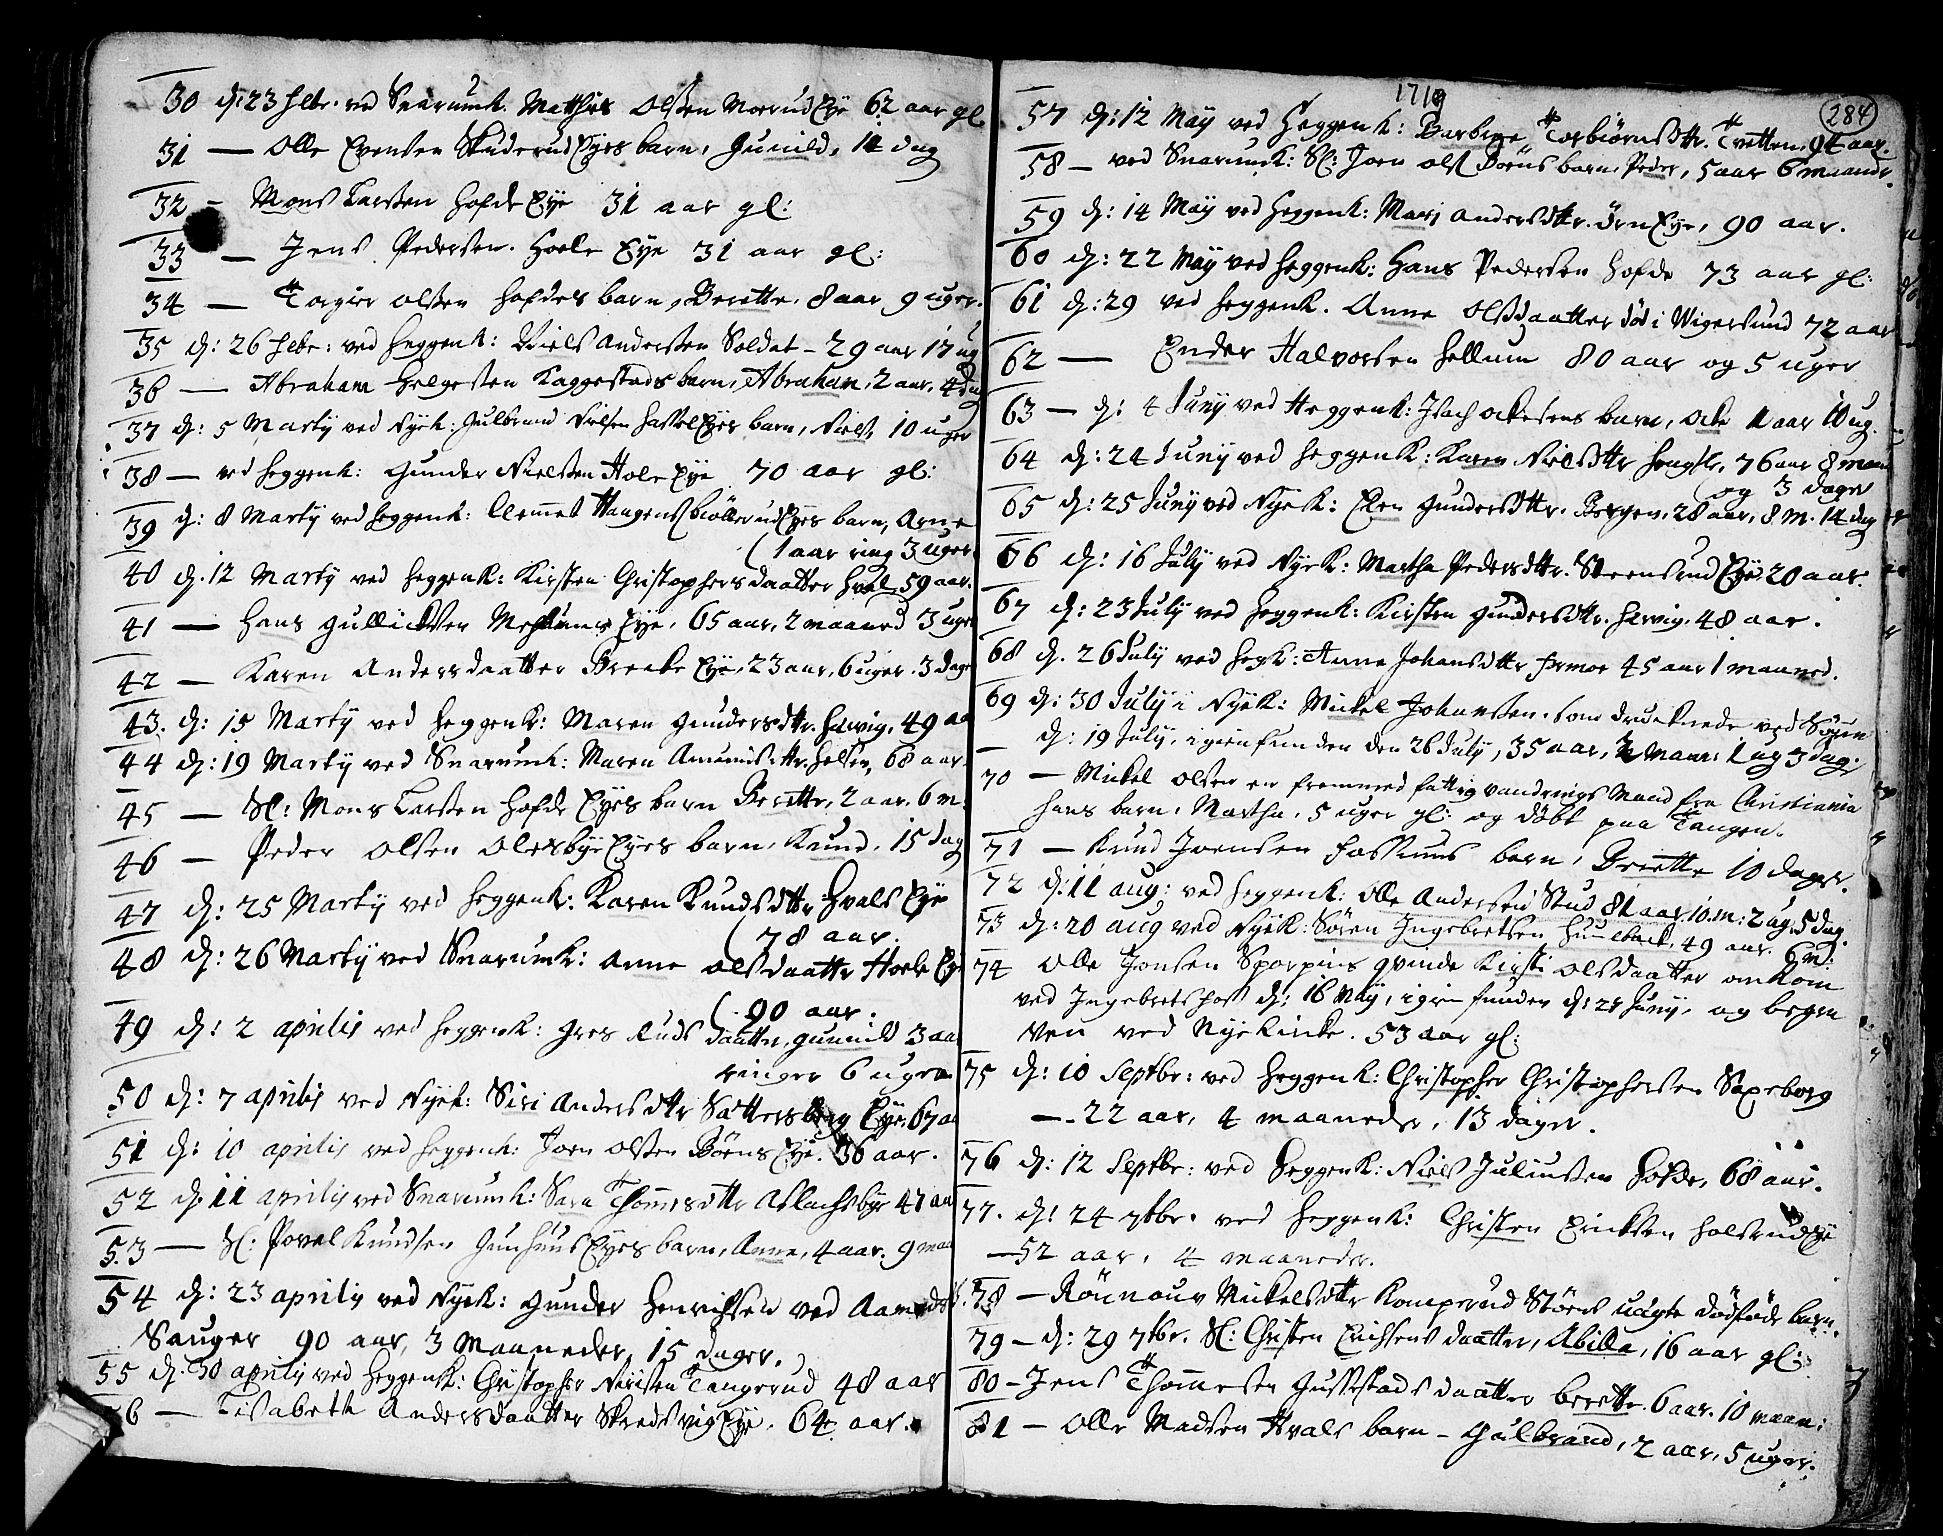 30 d: 23 Febr. ved Snarumk. Matthis Olsen Moerud Eye 62 aar gl
31 — Olle Evensen Skuderud Eyes barn, Gunild, 11 dag
32 – Mons Larsen Hofde Eye 31 aar gl:
33 — Jens Pedersen Hoele Eye 31 aar gl:
34 — Torgier Olsen Hofdes barn, Berette, 8 aar 9 uger.
35 d: 26 Febr: ved Heggenk: Niels Andersen Soldat – 29 aar 17 ug
36 — Abraham Helgesen Kaggestads barn, Abraham, 2 aar, 4 dag
37 d: 5 Martÿ ved Nyek: Gulbrand Nielsen Hassel Eyes barn, Niels, 10 uger
38 — ved Heggenk: Gunder Nielsen Hole Eye 70 aar gl:
39 d: 8 Martÿ ved Heggenk: Clemmet Haagens biøllerud Eyes barn, Arne
(1 aar ring 3 uger.
40 d. 12 Martÿ ved Heggenk: Kirsten Christophersdaatter Hval 59 aar.
41 — Hans Gullicksen Eye, 65 aar, 2 maaned 3 uger
42 — Karen Andersdaatter Breeke Eye, 23 aar, 6 uger. 3 dage
43. d: 15 Martÿ ved Heggenk: Maren Gundersdttr. Hervig, 49 aa
44 d: 19 Martÿ ved Snarumk: Maren Amunds:ttr. Helsen, 68 aar.
45 — Sl: Mons Larsen Hofde Eyes barn Berette, 2 aar. 6 m.
46 — Peder Olsen Olesbye Eyes barn, Knud, 15 dag
47 d: 25 Martÿ ved Heggenk: Karen Knudsdttr Hvals Eye
(78 aar.
48 d: 26 Martÿ ved Snarumk: Anne Olsdaattr Hoele Ey
(90 aar.
49 d: 2 aprilis ved Heggenk: Gres Ruds daattr, Gunnild 3 aar
ringer 6 uger
50 d: 7 aprilis ved Nyek: Siri Andersdttr Sattersberg Eye, 67 aa
51 d: 10 aprilis ved Heggenk: Joen Olsen Børns Eye. 36 aar.
52 d. 11 aprilis ved Snarumk: Sara Thomesdttr Aslachsbye 47 aar
53 — Sl: Povel Knudsen Gunhuus Eyes barn, Anne, 4 aar. 9 maa
54 d: 23 aprilis ved Nyek: Gunder Henrichsen ved Aamods
Sauger 90 aar, 3 Maaneder, 15 dager.
55 d: 30 aprilÿ ved Heggenk: Christopher Tangerud 48 aar
56 — Lisabeth Andersdaatter Skredsvig Eye, 64 aar.
1719
284
57 d: 12 Maÿ ved Heggenk: Barbroe Torbiørnsdttr. Tvetten, 94 aar.
58 – ved Snarumk: Sl: Joen Ols Børns barn, Peder, 5 aar 6 maandr.
59 d: 14 Maÿ ved Heggenk: Mari Andersdttr. Ørn Eye, 90 aar.
60 d: 22 Maÿ ved Heggenk: Hans Pedersen Hofde 73 aar gl:
61 d: 29 ved Heggenk. Anne Olsdaatter død i Wigersund 72 aar
62 — Ender Halvorsen Hellum 80 aar og 5 uger
63 — d: 4 Junÿ ved Heggenk: Isach Ockesens barn, Ocke 1 aar 10 ug.
64 d: 24 Junÿ ved Heggenk: Karen Nielsdttr 76 aar 8 maan
(og 3 dage
65 d: 25 Junÿ ved Nyek: Elen Gundersdttr. Bergen, 28 aar, 8. m. 14 dag
66 d: 16 Julÿ ved Nyek: Martha Pedersdttr. Steensrud Eye 20 aar.
67 d: 23 Julÿ ved Heggenk: Kirsten Gundersdttr. Hervig, 48 aar.
68 d. 26 Julÿ ved Hegk: Anna Johansdttr Formoe 45 aar 1 maaned.
69 d: 30 Julÿ i Nyek: Mickel Johansen, som drucknede ved Søjen
— d: 19 Julÿ, igien funden den 26 Julÿ, 35 aar, 2 Maan: 1 ug 3 dag.
70 — Mickel Olsen en fremmed fattig vandrings Mand fra Christiania
hans barn, Martha, 5 uger gl: og døbt paa Tangen.
71 — Knud Joensen Fossums barn, Briette 10 dager.
72 d: 11 aug: ved Heggenk: Olle Andersen Stud 81 aar 10. m: 2 ug. 5 dag.
73 d: 20 aug ved Nyek: Søren Ingebretsen Huusebeck, 49 aar. 6 m:
74 Olle Jonsen Sporpins qvinde Kirsti Olsdaatter omkom
ved Ingebretshos d: 16 Maÿ, igien funden d: 25 Junÿ, og begra
ven ved Nyekircke. 53 aar gl:
75 d: 10 Septbr: ved Heggenk: Christopher Christophersen Saxeborg
—. 22 aar, 4 maaneder, 13 dager.
76 d: 12 Septbr: ved Heggenk: Niels Juliussen Hofde, 68 aar.
77. d: 24 7tbr. ved Heggenk: Christen Ericksen Holsrud Eye
— 52 aar, 4 maaneder.
78 — Rønnouv Mickelsdttr Komperud Støens uægte dødfødt barn.
79 – d: 29 7tbr. Sl: Christen Erichsens daatter, Abilla, 16 aar gl:
80 – Jens Thommesen Gussestads daatter berette. 6 aar. 10 maan:
81 – Olle Madsen Hvals barn – Gulbrand, 2 aar, 5 uger.